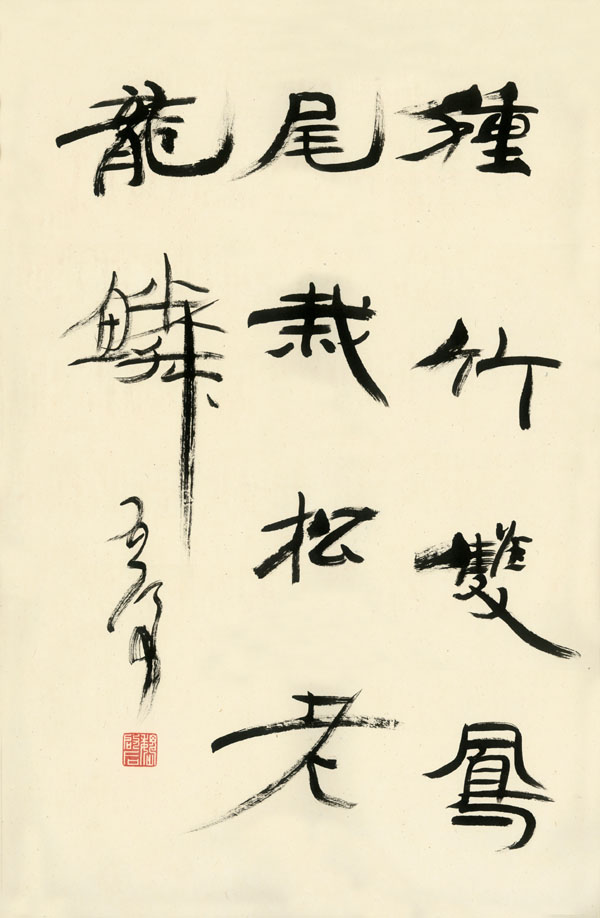 種竹雙鳳
尾栽松老
龍鱗